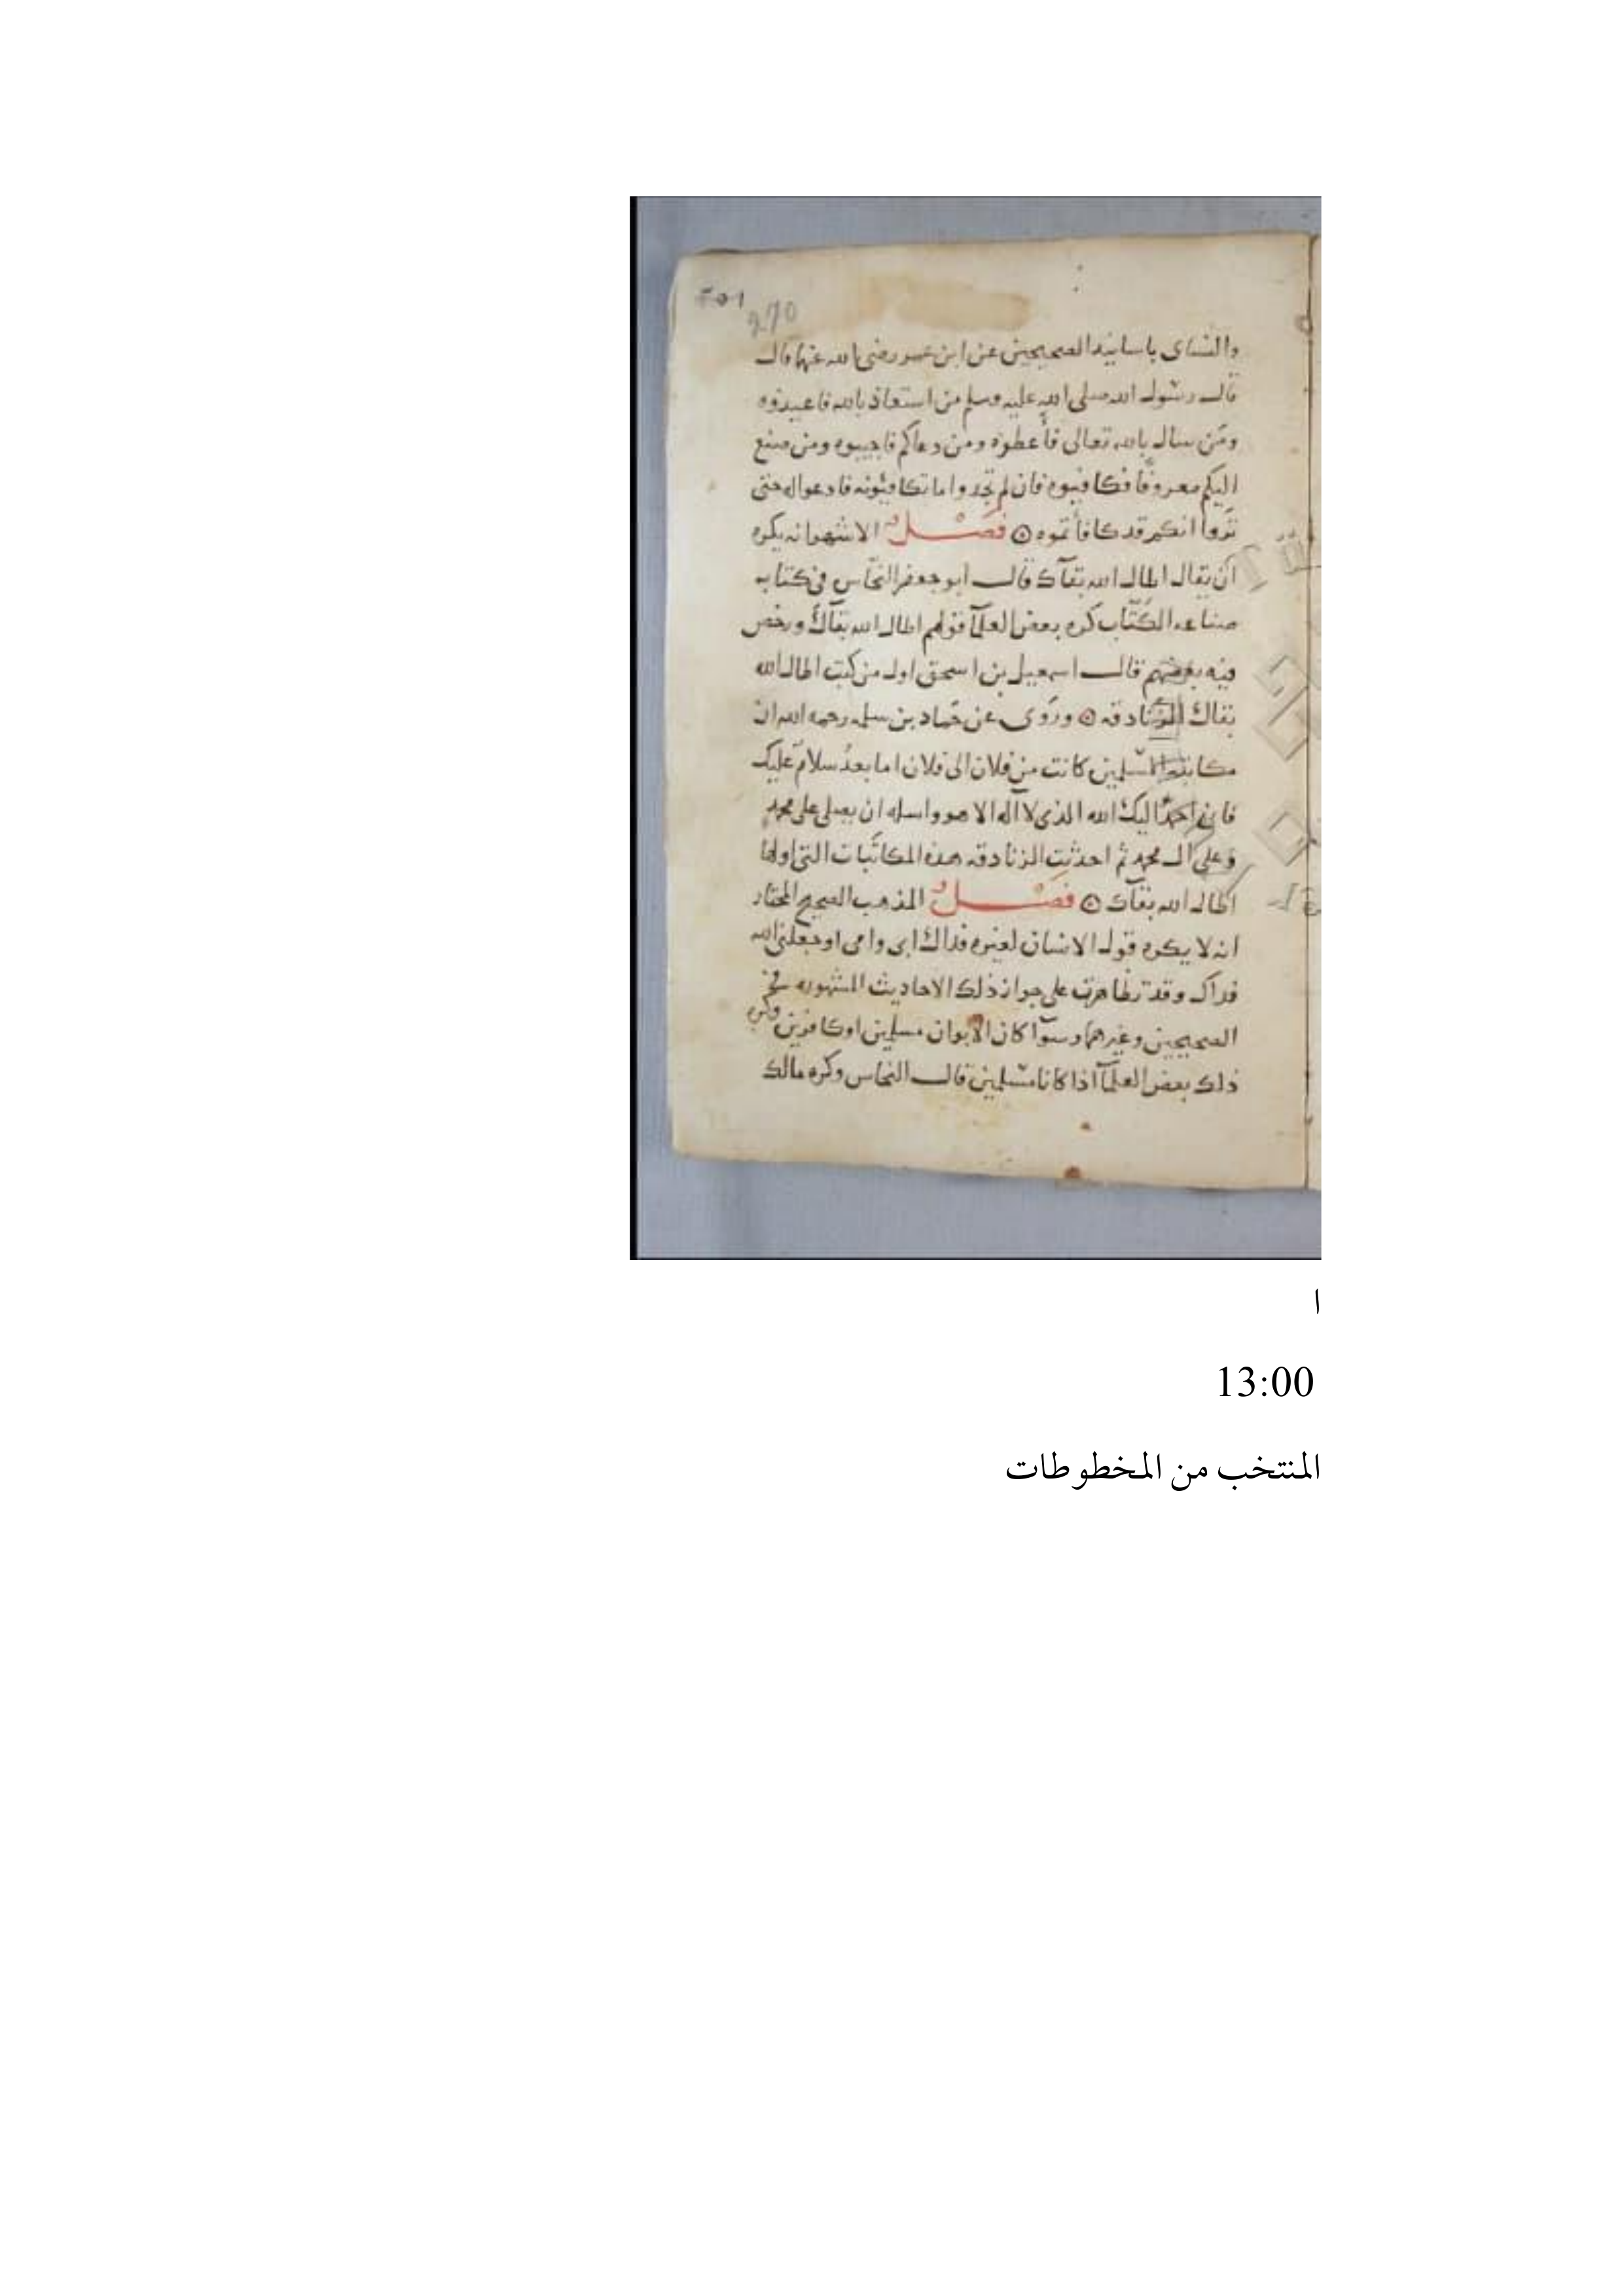 ٢٥١
270
والنسائ باسانيد الصحيحين عن ابن عمر رضي الله عنهما قال
قال رسول الله صلى الله عليه وسلم من استعاذ بالله فاعيذوه
ومن سال بالله تعالى فأعطوه ومن دعاكم فاجيبوه ومن صنع
اليكم معروفا فكافيوه فان لم تجدوا ما تكافئونه فادعوا له حتى
تروا انكم قد كافأتموه فصل الاشهر انه يكره
ان يقال اطال الله بقآك قال ابو جعفر النحاس في كتابه
صناعه الكتاب كره بعض العلمآ قولهم اطال الله بقآك ورخص
فيه بعضهم قال اسمعيل بن اسحق اول من كتب اطال الله
بقاك الزنادقه وروى عن حماد بن سلمه رحمه الله ان
مكاتبه المسلمين كانت من فلان الى فلان اما بعد سلام عليك
فاني احمد اليك الله الذي لا اله الا هو واسله ان يصلي على محمد
وعلى ال محمد ثم احدثت الزنادقه هذه المكاتبات التي اولها
اطال الله بقآك فصل المذهب الصحيح المختار
انه لا يكره قول الانسان لغيره فداك ابى وامى او جعلني الله
فداك وقد تظاهرت على جواز ذلك الاحاديث المشهوره في
الصحيحين وغيرهما وسوآ كان الابوان مسلمين او كافرين وكره
ذلك بعض العلمآ اذا كانا مسلمين قال النحاس وكره مالك
ا
13:00
المنتخب من المخطوطات